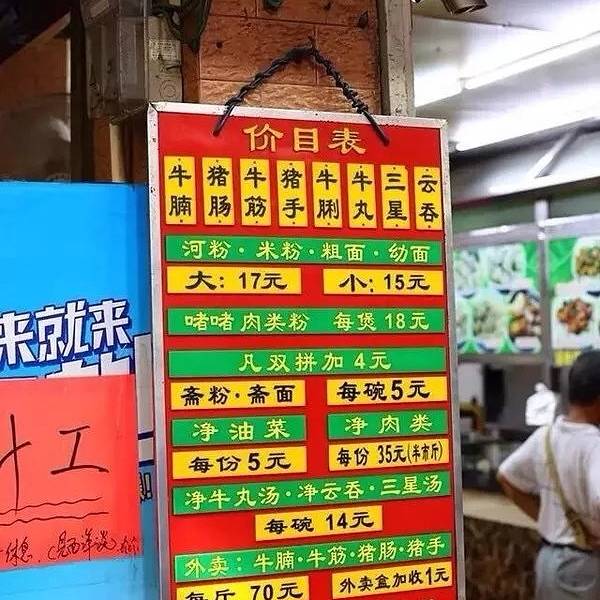 价目表
牛腩 猪肠 牛筋 猪手 牛脷 牛丸 三星 云吞
河粉·米粉·粗面·幼面
大:17元 小:15元
啫啫肉类粉 每煲18元
凡双拼加4元
斋粉·斋面 每碗5元
净油菜 净肉类
每份5元 每份35元(半市斤)
净牛丸汤·净云吞·三星汤
每碗14元
外卖:牛腩·牛筋·猪肠·猪手
每斤70元 外卖盒加收1元
来就来
工
休息.